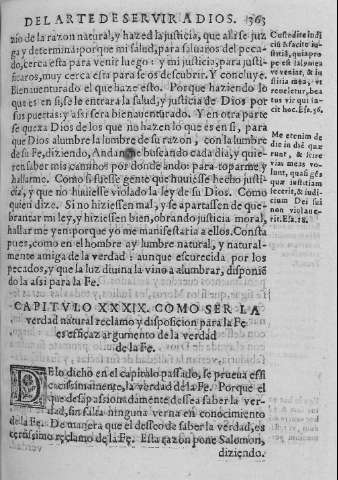 DEL ARTE DE SERVIR A DIOS. 363
zio de la razon natural, y hazed la justicia, que alla se juz
ga y determina: porque mi salud, para saluaros del peca-
do, cerca esta para venir luego: y mi justicia, para justi-
ficaros, muy cerca esta para se os descubrir. Y concluye.
Bienauenturado el que haze esto. Porque haziendo lo
que es en si, se le entrara la salud, y justicia de Dios por
sus puertas: y assi sera bienauenturado. Y en otra parte
se quexa Dios de los que no hazen lo que es en si, para
que Dios alumbre la lumbre de su razon, con la lumbre
de su Fe, diziendo, Andan me buscando cada dia, y quie-
ren saber mis caminos por donde andos para toparme y
hallarme. Como si fuesse gente que huuiesse hecho justi-
cia, y que no huuiesse violado la ley de su Dios. Como
quien dize. Si no hiziessen mal, y se apartassen de que-
brantar mi ley, y hiziessen bien, obrando justicia moral,
hallar me yen: porque yo me manifestaria a ellos. Consta
pues, como en el hombre ay lumbre natural, y natural-
mente amiga de la verdad: aunque escurecida por los
pecados, y que la luz diuina la vino a alumbrar, disponiē
do la assi para la Fe.
CAPITVLO XXXIX. COMO SER LA
verdad natural reclamo y disposicion para la Fe
es efficaz argumento de la verdad
de la Fe.
DE lo dicho en el capitulo passado, se prueua effi
cacissimamente, la verdad de la Fe. Porque el
que desapassionadamente dessea saber la ver-
dad, sin falta ninguna verna en conocimiento
de la Fe. De manera que el desseo de saber la verdad, es
certissimo reclamo de la Fe. Esta razon pone Salomon,
diziendo.
Custodite indi
ciū & facite iu-
stitiā, quia pro-
pe est salus mea
vt veniat, & iu
stitia mea, vt
reueletur, bea-
tus vir qui fa-
cit hoc. Esa. 56.
Me etenim de
die in diē quæ
runt, & scire
vias meas vo-
lunt, quasi gēs
quæ iustitiam
fecerit, & iudi-
cium Dei sui
non violaue-
rit. Esa. 58.